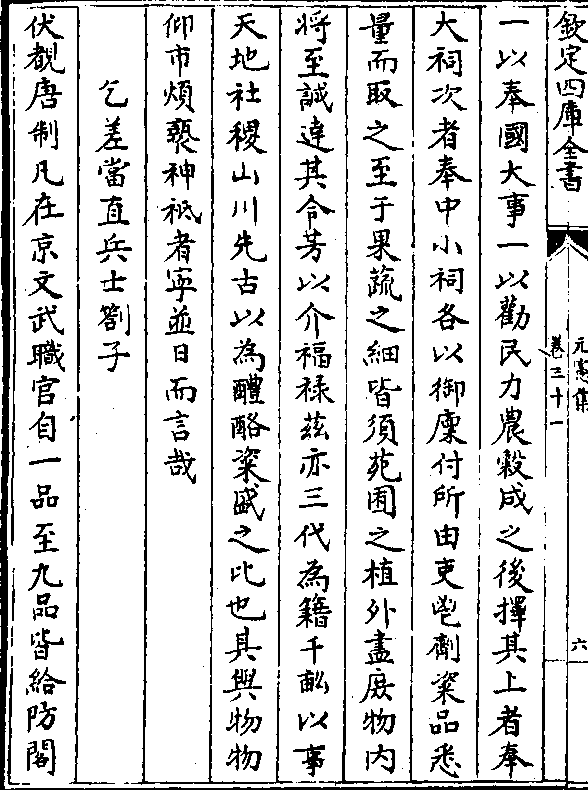 欽定四庫全書
元憲集
卷三十一
六
一以奉國大事一以勸民力農穀成之後擇其上者奉
大祠次者奉中小祠各以御廩付所由吏鬯劑粢品悉
量而取之至于果蔬之細皆須苑囿之植外盡庶物内
将至誠達其令芳以介福禄茲亦三代為籍千畝以事
天地社稷山川先古以為醴酪粢盛之比也具與物物
仰市煩褻神祇者寧並日而言哉
乞差當直兵士劄子
伏覩唐制凡在京文武職官自一品至九品皆給防閤